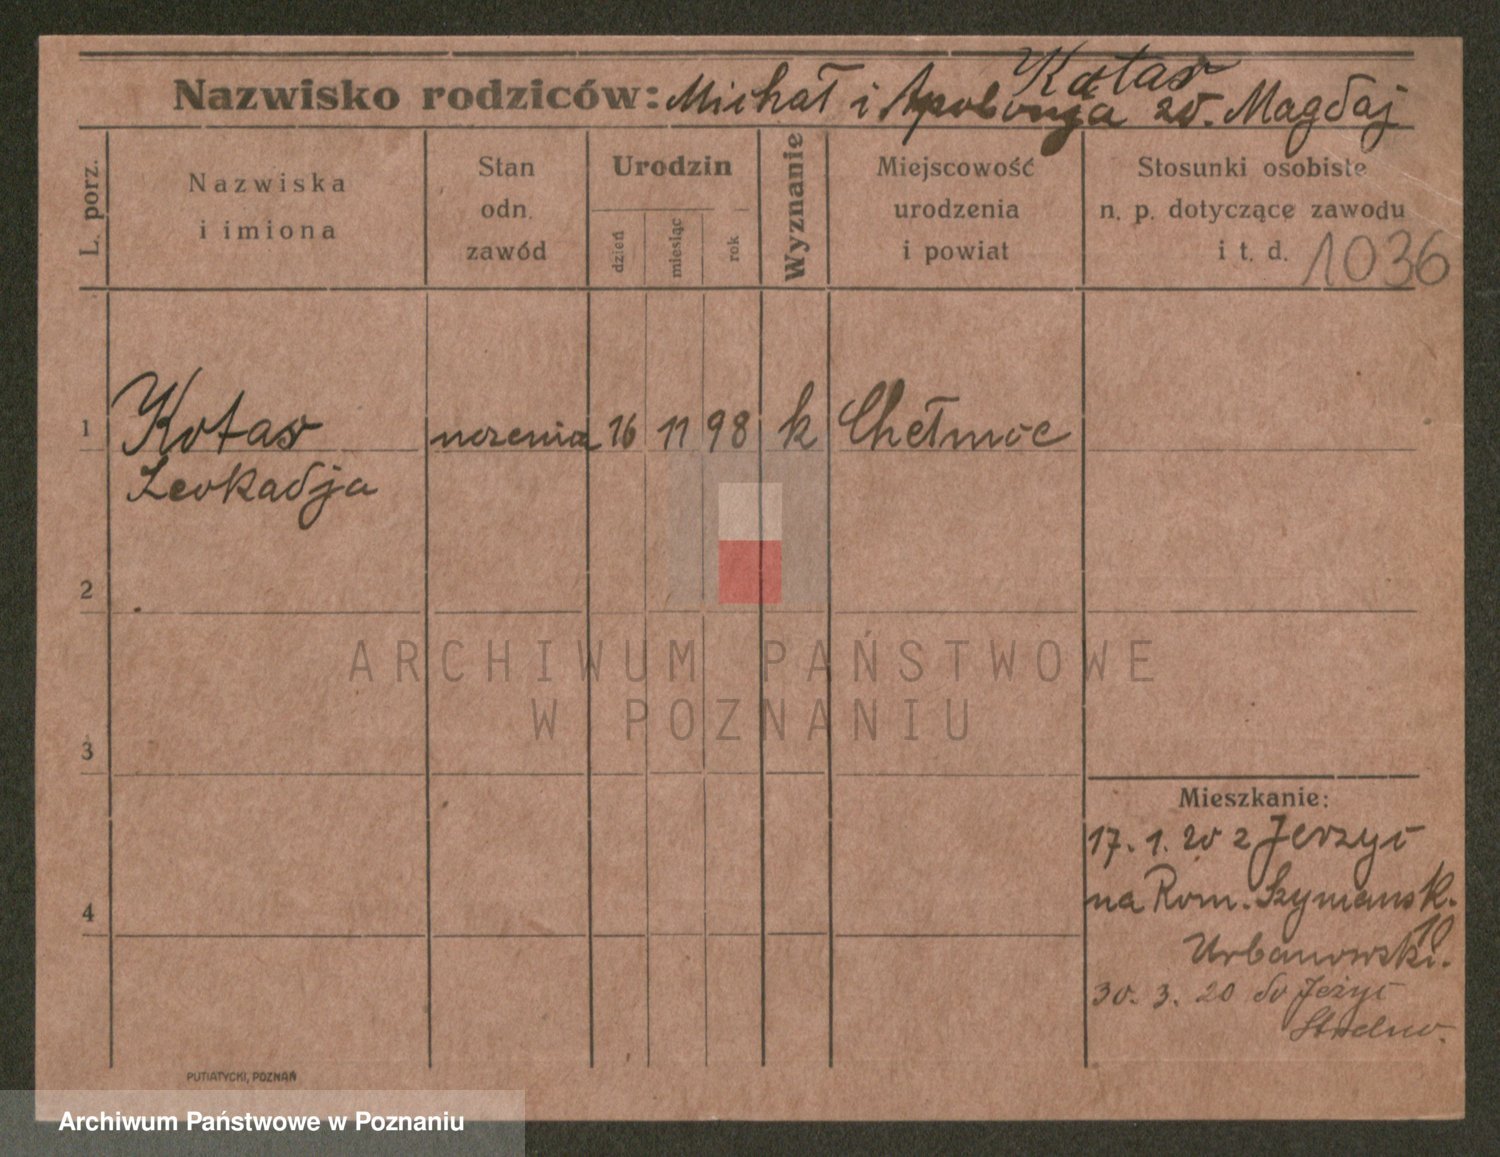 Kotas
Nazwisko rodziców: Michał i Apolonja z d. Magdaj
L. porz.
Nazwiska
i imiona
Stan
odn.
zawód
Urodzin
dzień
miesiąc
rok
Wyznanie
Miejscowość
urodzenia
i powiat
Stosunki osobiste
n. p. dotyczące zawodu
i t. d.
1036
1 Kotas uczenia 16 11 98 k Chełmce
Leokadja
2
3
4
Mieszkanie:
17. 1. 20 z Jerzyc
na Rom. Szymansk.
10
Urbanowski.
30. 3. 20 do Jeżyc
PUTIATYCKI, POZNAŃ
ARCHIWUM PAŃSTWOWE
W POZNANIU
Archiwum Państwowe w Poznaniu